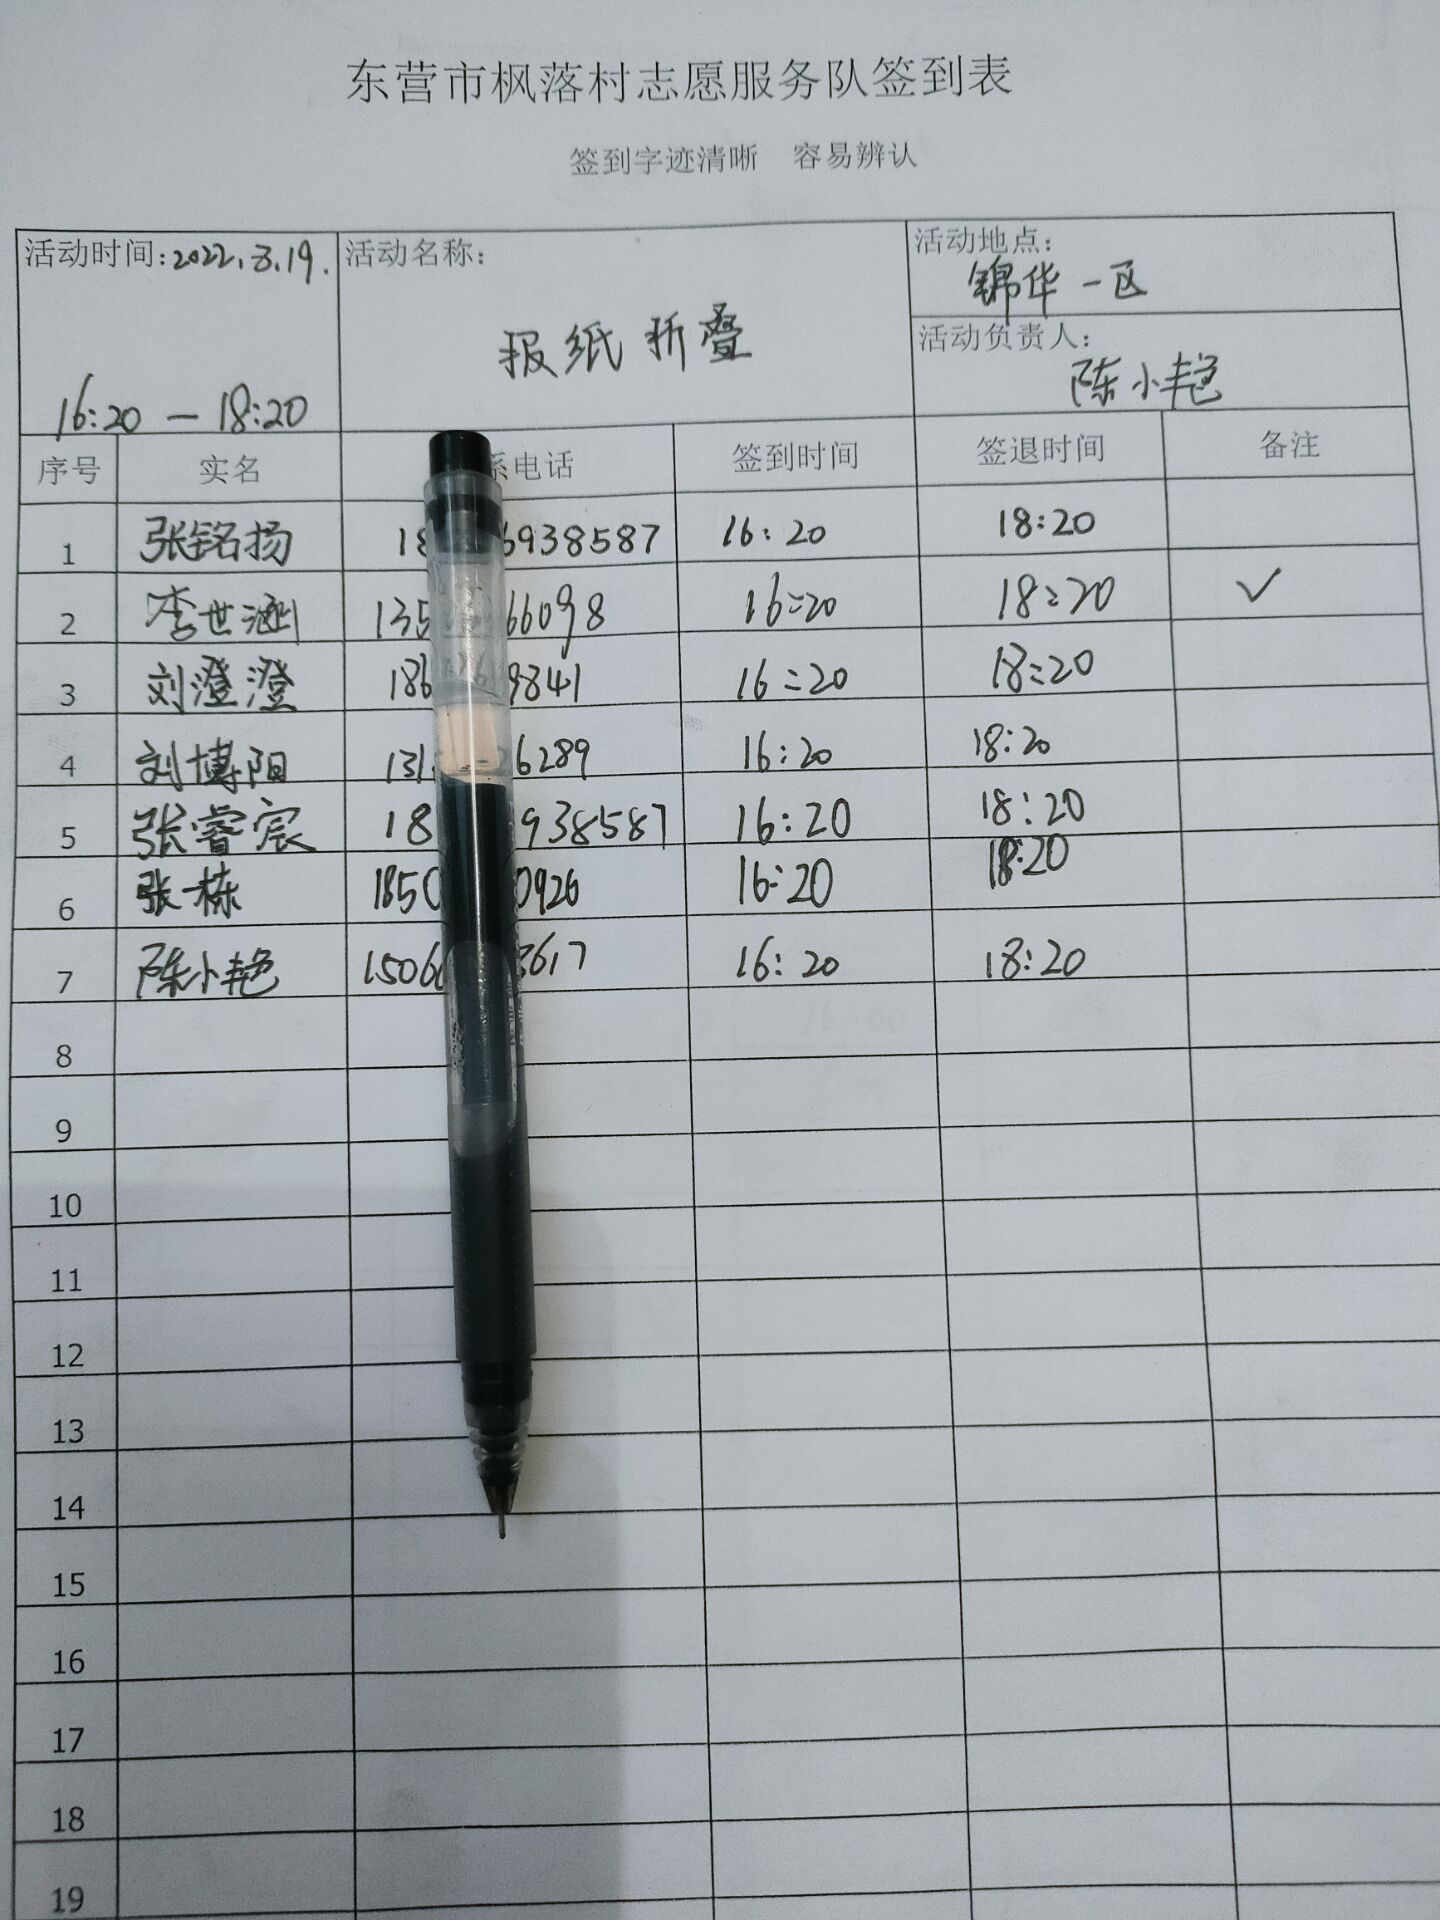 东营市枫落村志愿服务队签到表
签到字迹清晰 容易辨认
活动时间:2022.3.19. 活动名称: 活动地点:
锦华一区
报纸折叠
活动负责人:
陈小艳
16:20 — 18:20
序号 实名 系电话 签到时间 签退时间 备注
1 张铭扬 18 6938587 16:20 18:20
2 李世涵 135 66098 16:20 18:20 ✓
3 刘澄澄 186 9841 16:20 18:20
4 刘博阳 131 6289 16:20 18:20
5 张睿宸 18 938587 16:20 18:20
6 张一栋 1850 0926 16:20 18:20
7 陈小艳 1506 3617 16:20 18:20
8
9
10
11
12
13
14
15
16
17
18
19